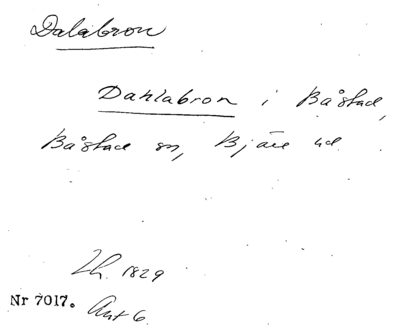 Dalabron
Dahlabron i Båstad,
Båstad sn, Bjäre hd
Lh. 1829
Nr 7017. Ant 6.